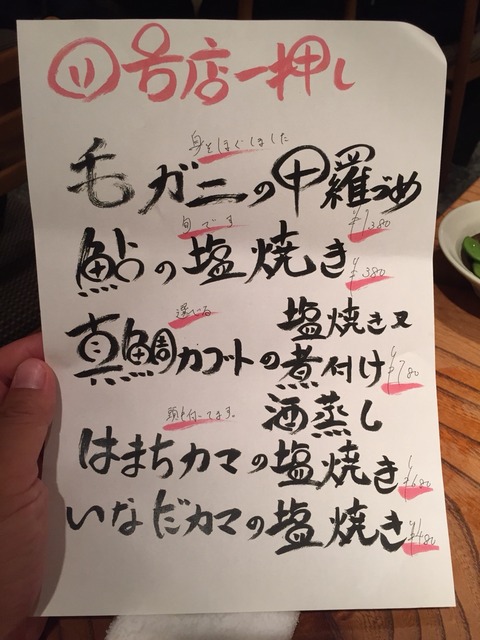 号店一押し
身をほぐしました
毛ガニの甲羅づめ
¥1,380
旬です
鮎の塩焼き
¥380
選べる
真鯛カブトの塩焼き又煮付け酒蒸し
¥780
頭も付いてます。
はまちカマの塩焼き
¥680
いなだカマの塩焼き
¥480